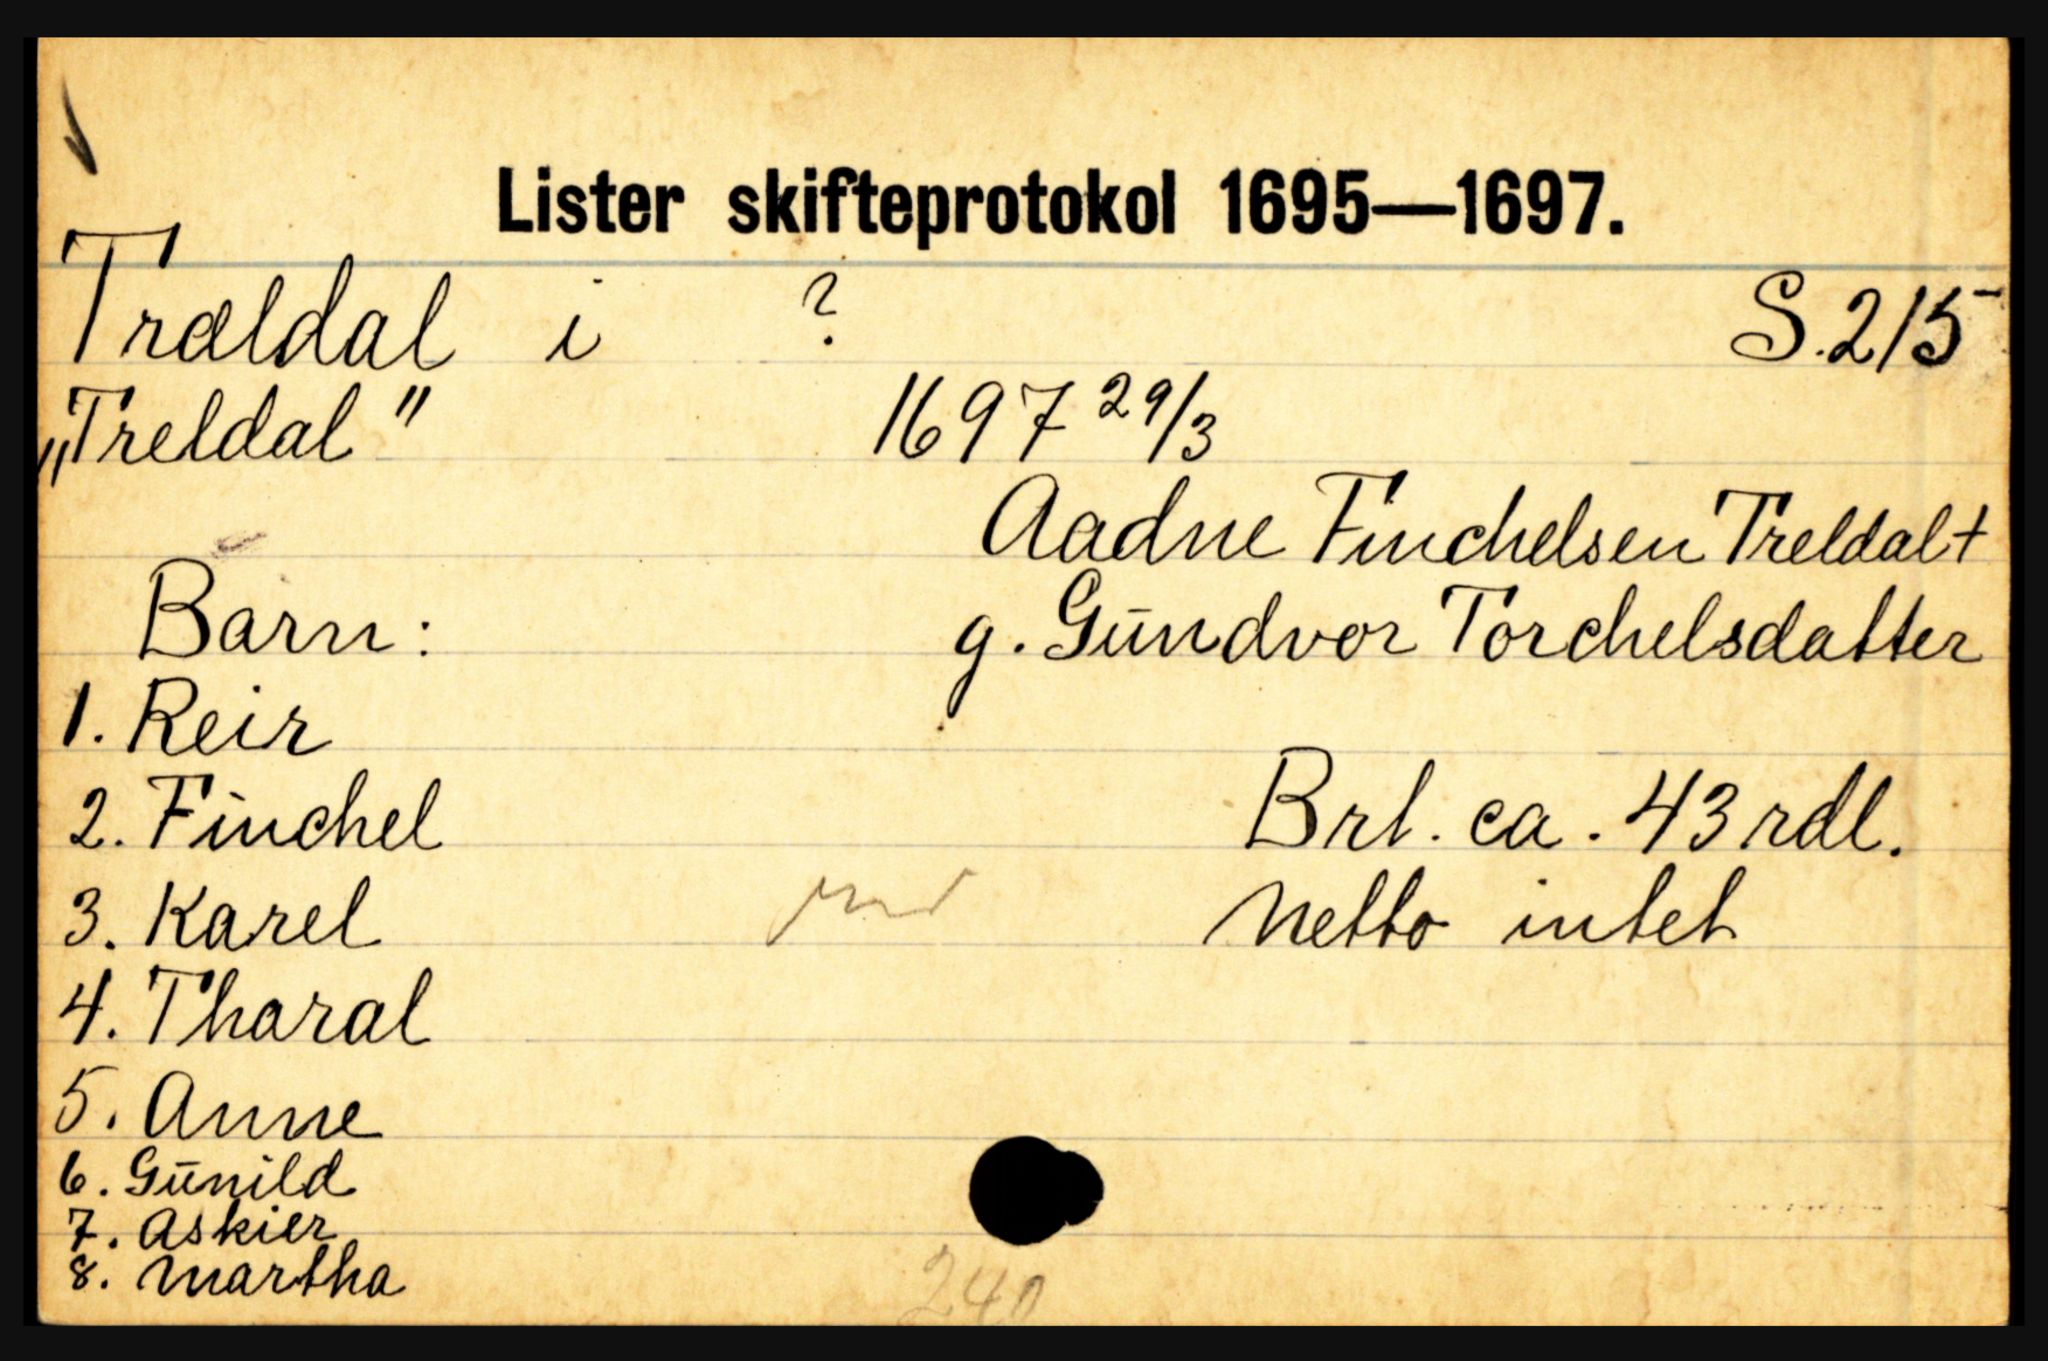 Lister skifteprotokol 1695—1697.
Trældal i ? S. 215
„Treldal" 1697 29/3
Aadne Finchelsen Treldal +
Barn: g. Gūndvor Torchelsdatter
1. Reir
2. Finchel Brt. ca. 43 rdl.
3. Karel Netto intet
4. Tharal
5. Anne
6. Gūnild
7. Askier
8. Martha
240